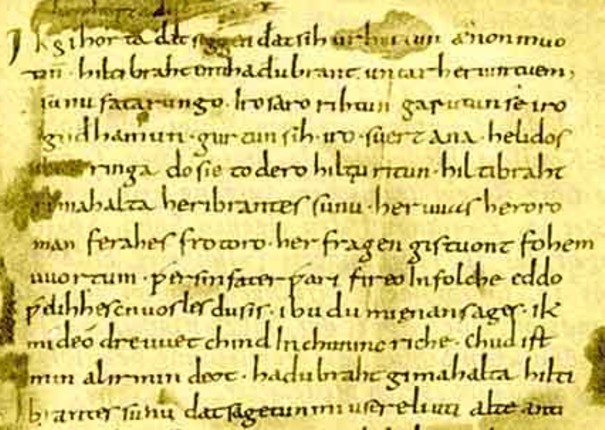 Ik gihorta dat seggen dat sih urhettun ænon muo
tin · hiltibraht enti hadubrant · untar heriun tuem ·
sunu fatarungo · iro saro rihtun garutun se iro
gudhamun · gurtun sih · iro · suert ana · helidos
ringa do sie to dero hiltu ritun · hiltibraht
gimahalta heribrantes sunu · her uuas heroro
man ferahes frotoro · her fragen gistuont fohem
uuortum · ƿer sin fater ƿari fireo In folche eddo
ƿelihhes cnuosles du sis · ibu du mi ęnan sages · ik
mi deo dre uuet chind In chuninc riche · chud ist
min al irmin deot · hadubraht gimahalta hilti
brantes sunu dat sagetun mi usere liuti alte anti